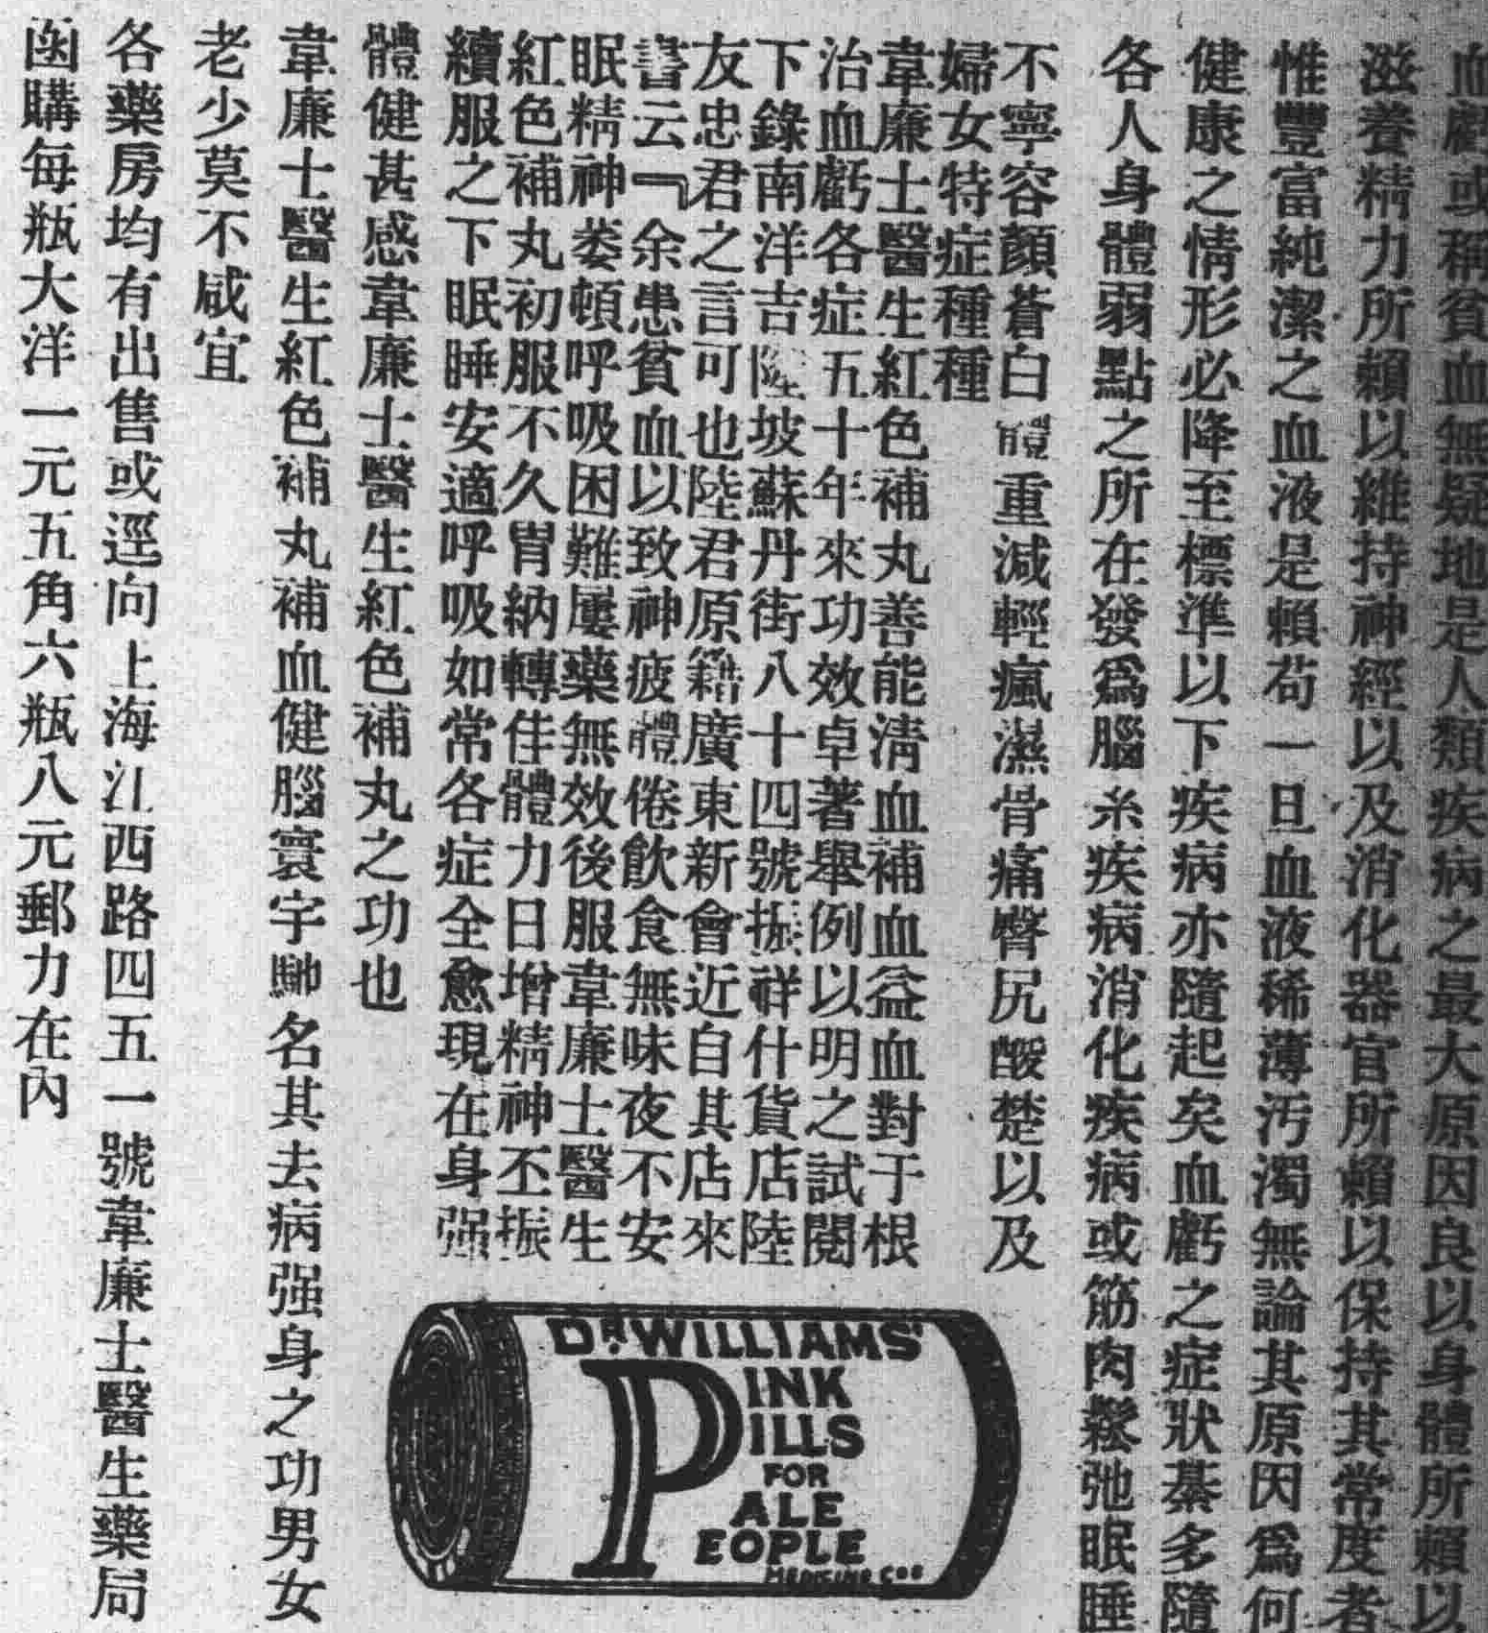 血虧或稱貧血無疑地是人類疾病之最大原因良以身體所賴以
滋養精力所賴以維持神經以及消化器官所賴以保持其常度者
惟豐富純潔之血液是賴苟一旦血液稀薄汚濁無論其原因爲何
健康之情形必降至標準以下疾病亦隨起矣血虧之症狀綦多隨
各人身體弱點之所在發爲腦系疾病消化疾病或筋肉鬆弛眠睡
不寧容顏蒼白體重減輕瘋濕骨痛臀尻酸楚以及
婦女特症種種
韋廉士醫生紅色補丸善能淸血補血益血對于根
治血虧各症五十年來功效卓著舉例以明之試閱
下錄南洋吉隆坡蘇丹街八十四號振祥什貨店陸
友忠君之言可也陸君原籍廣東新會近自其店來
書云『余患貧血以致神疲體倦飲食無味夜不安
眠精神萎頓呼吸困難屢藥無效後服韋廉士醫生
紅色補丸初服不久胃納轉佳體力日增精神丕振
續服之下眠睡安適呼吸如常各症全愈現在身强
體健甚感韋廉士醫生紅色補丸之功也
韋廉士醫生紅色補丸補血健腦寰宇馳名其去病强身之功男女
老少莫不咸宜
各藥房均有出售或逕向上海江西路四五一號韋廉士醫生藥局
函購每瓶大洋一元五角六瓶八元郵力在內
DR. WILLIAMS'
PINK
PILLS
FOR
PALE
PEOPLE
MEDICINE COE